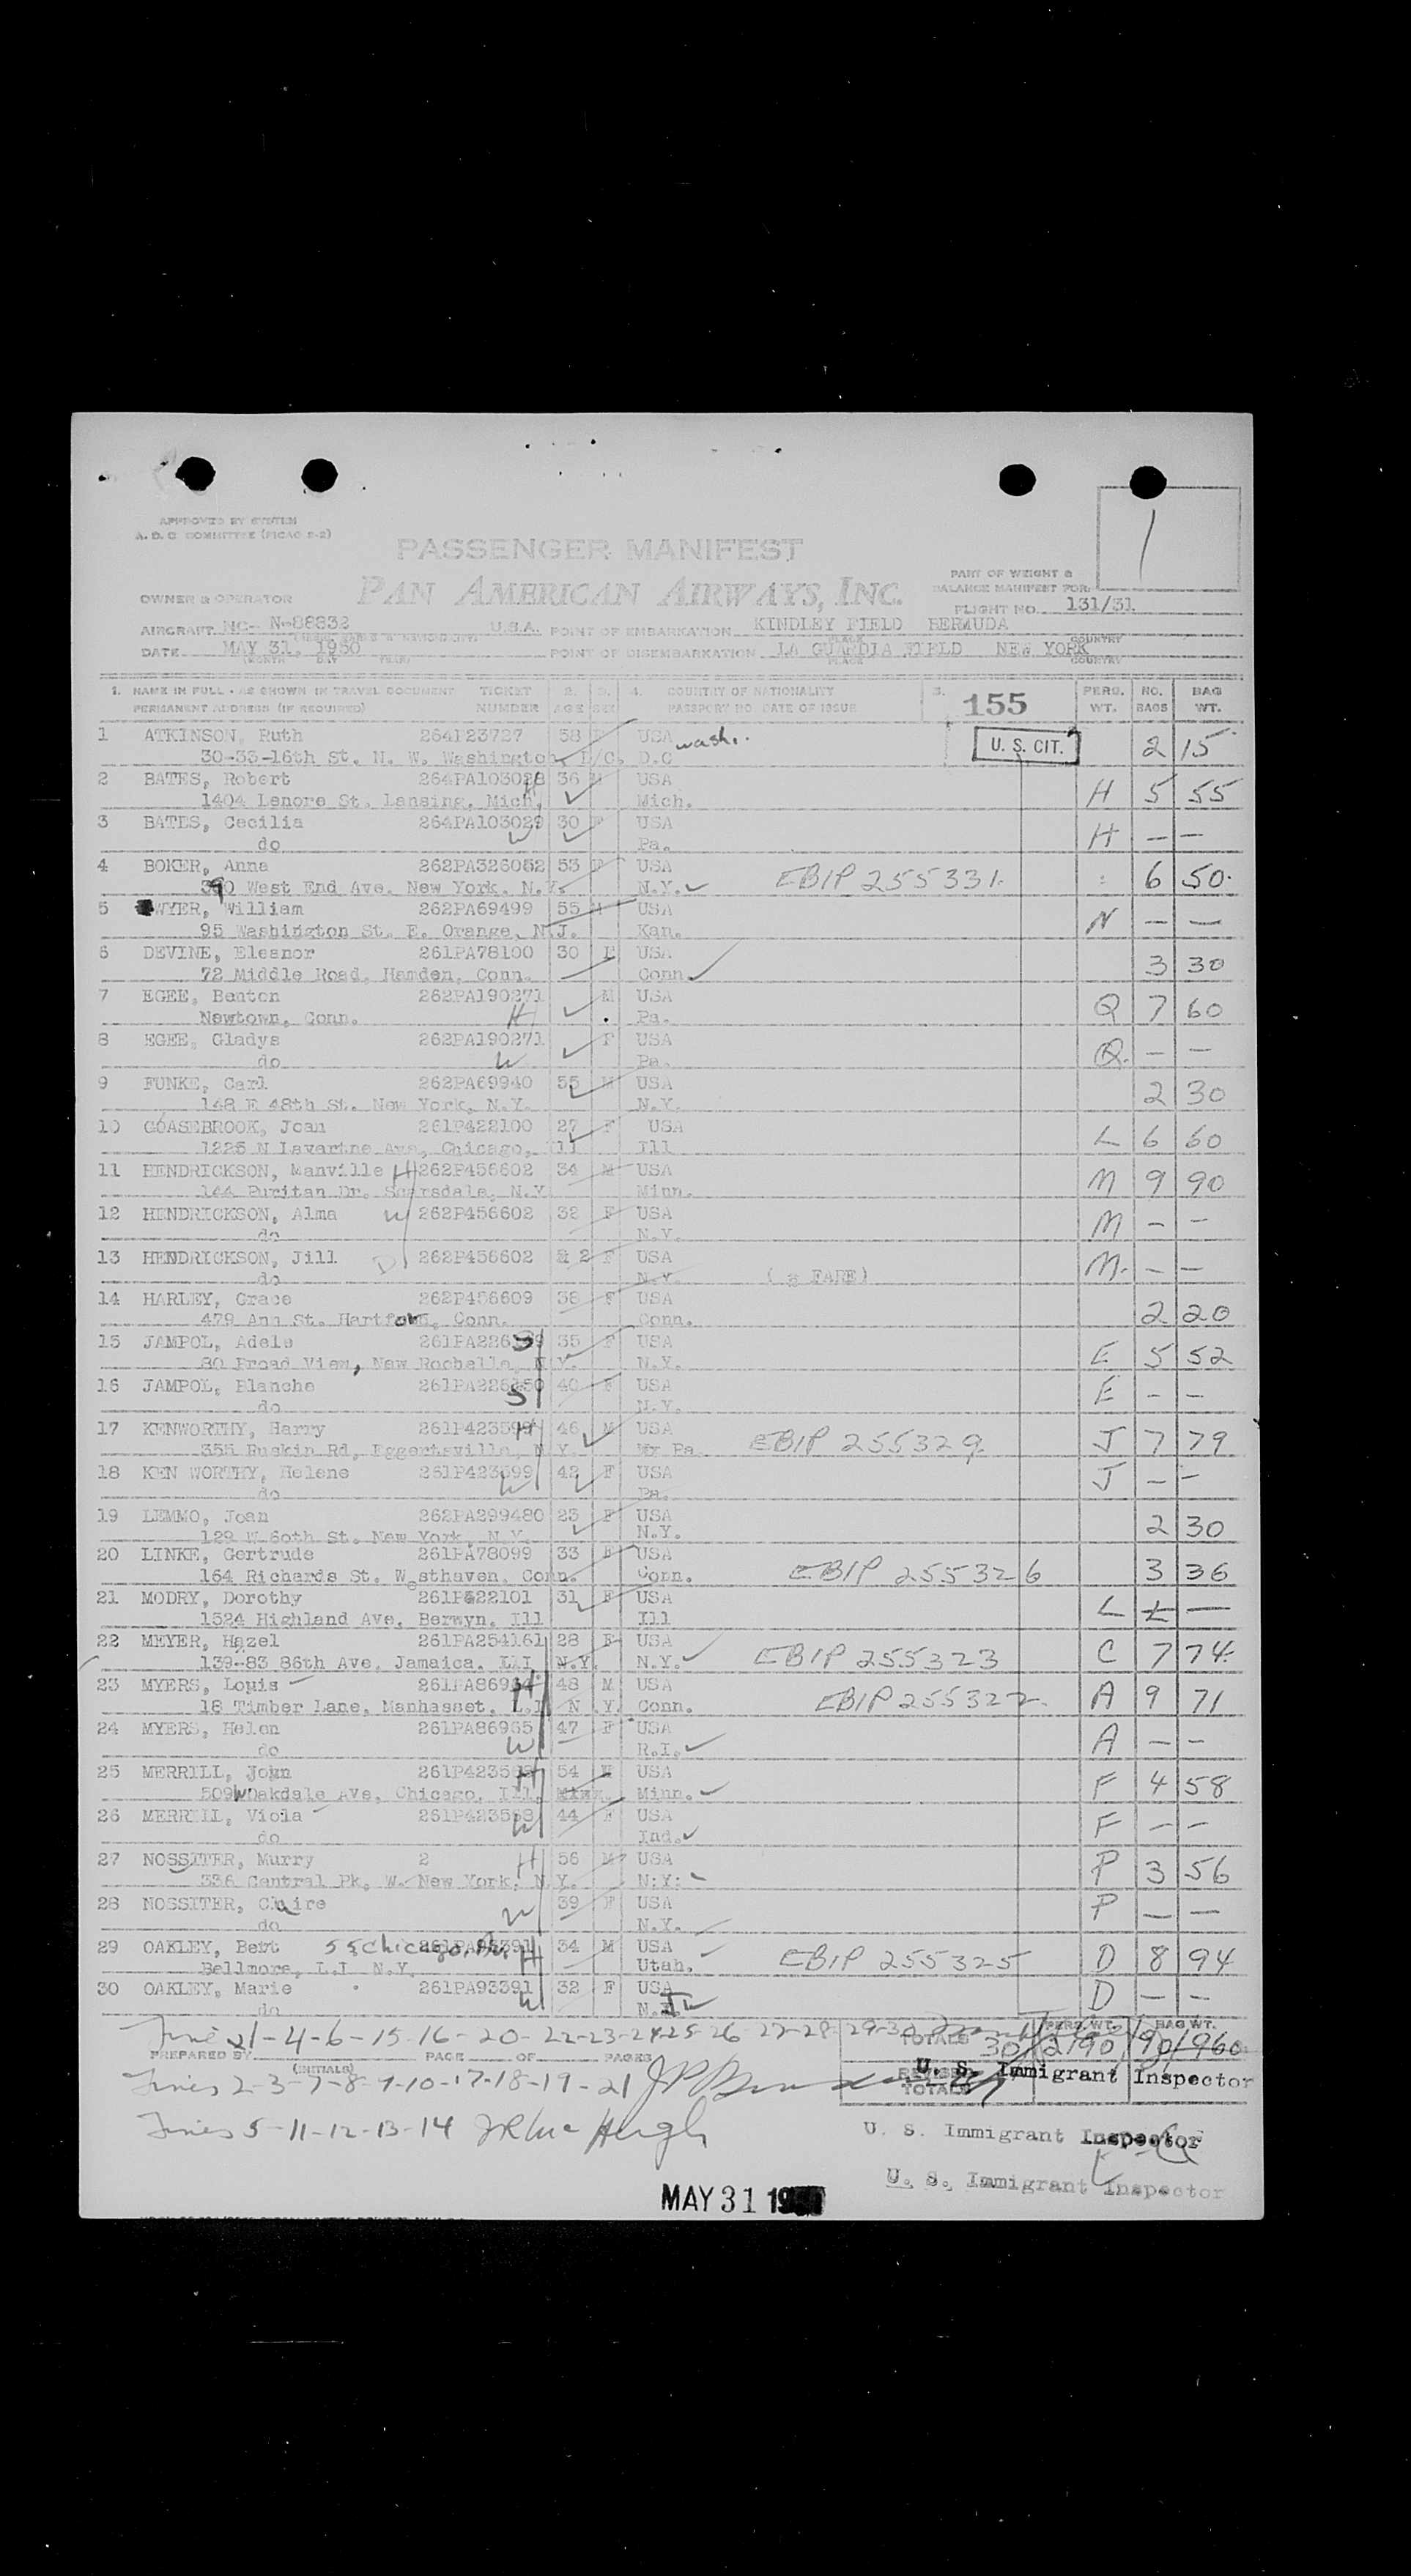 APPROVED BY SYSTEM
A. D. C. COMMITTEE (PICAO P-2)
PASSENGER MANIFEST
PAN AMERICAN AIRWAYS, INC.
1
PART OF WEIGHT &
BALANCE MANIFEST FOR:
FLIGHT NO. 131/31
OWNER & OPERATOR
AIRCRAFT NC- N-88832 U.S.A. POINT OF EMBARKATION KINDLEY FIELD BERMUDA
PLACE COUNTRY
DATE MAY 31, 1950 POINT OF DISEMBARKATION LA GUARDIA FIELD NEW YORK
(MONTH DAY YEAR) PLACE COUNTRY
1. NAME IN FULL - AS SHOWN IN TRAVEL DOCUMENT TICKET 2. 3. 4. COUNTRY OF NATIONALITY 5. 155 PERS. NO. BAG
PERMANENT ADDRESS (IF REQUIRED) NUMBER AGE SEX PASSPORT NO. DATE OF ISSUE WT. BAGS WT.
1 ATKINSON, Ruth 264P23727 58 F USA U. S. CIT. 2 15
30-33-16th St. N. W. Washington, D.C. wash.
2 BATES, Robert 264PA103028 36 M USA H 5 55
1404 Lenore St. Lansing, Mich. H Mich.
3 BATES, Cecilia 264PA103029 30 F USA H — —
do W Pa.
4 BOKER, Anna 262PA326062 53 F USA EBIP 255331 6 50
390 West End Ave. New York. N.Y. N.Y.
5 WYER, William 262PA69499 55 M USA N — —
95 Washington St. E. Orange, N.J. Kan.
6 DEVINE, Eleanor 261PA78100 30 F USA 3 30
72 Middle Road, Hamden, Conn. Conn
7 EGEE, Benton 262PA190271 M USA Q 7 60
Newtown, Conn. H Pa.
8 EGEE, Gladys 262PA190271 F USA Q. — —
do W Pa.
9 FUNKE, Carl 262PA69940 55 M USA 2 30
148 E 48th St. New York, N.Y. N.Y.
10 GOASEBROOK, Joan 261P422100 27 F USA L 6 60
1225 N Lavertne Ave, Chicago, Ill Ill
11 HENDRICKSON, Manville H 262P456602 34 M USA M 9 90
144 Puritan Dr. Scarsdale, N.Y. Minn.
12 HENDRICKSON, Alma W 262P456602 32 F USA M — —
do N.Y.
13 HENDRICKSON, Jill D 262P456602 2 F USA M. — —
do N.Y. FARE)
14 HARLEY, Grace 262P456609 38 F USA 2 20
479 Ann St. Hartford, Conn. Conn.
15 JAMPOL, Adele S 35 F USA E 5 52
80 Broad View, New Rochelle, N.Y. N.Y.
16 JAMPOL, Blanche S 40 F USA E — —
do N.Y.
17 KENWORTHY, Harry 261P423599 H 46 M USA EBIP 255329 J 7 79
355 Ruskin Rd, Eggertsville, N.Y. Pa.
18 KEN WORTHY, Helene 261P423599 42 F USA J — —
do W Pa.
19 LEMMO, Joan 262PA299480 23 F USA 2 30
129 W 60th St. New York, N.Y. N.Y.
20 LINKE, Gertrude 261PA78099 33 F USA EBIP 255326 3 36
164 Richards St. Westhaven, Conn. Conn.
21 MODRY, Dorothy 261P422101 31 F USA L —
1524 Highland Ave, Berwyn, Ill Ill
22 MEYER, Hazel 261PA254161 28 F USA EBIP 255323 C 7 74
139-83 86th Ave, Jamaica, L.I N.Y. N.Y.
23 MYERS, Louis H 48 M USA EBIP 255322 A 9 71
18 Timber Lane, Manhasset, L.I N.Y. Conn.
24 MYERS, Helen 261PA86965 47 F USA A — —
do W R.I.
25 MERRILL, John H 54 M USA F 4 58
509 W Oakdale Ave, Chicago, Ill. Minn.
26 MERRILL, Viola 44 F USA F — —
do W Ind.
27 NOSSITER, Murry 2 H 56 M USA P 3 56
336 Central Pk, W. New York, N.Y. N.Y.
28 NOSSITER, Claire W 39 F USA P — —
do N.Y.
29 OAKLEY, Bert Chicago Av. H 34 M USA EBIP 255325 D 8 94
Bellmore, L.I N.Y. Utah.
30 OAKLEY, Marie 261PA93391 W 32 F USA D — —
do N.J.
Lines 1-4-6-15-16-20-22-23-24-25-26-27-28-29-30 TOTALS 30 PERS. WT. 2190 BAG WT. 960
PREPARED BY (INITIALS) PAGE OF PAGES
Lines 2-3-7-8-9-10-17-18-19-21 TOTALS U. S. Immigrant Inspector
Lines 5-11-12-13-14 JR McHugh U. S. Immigrant Inspector
U. S. Immigrant Inspector
MAY 31